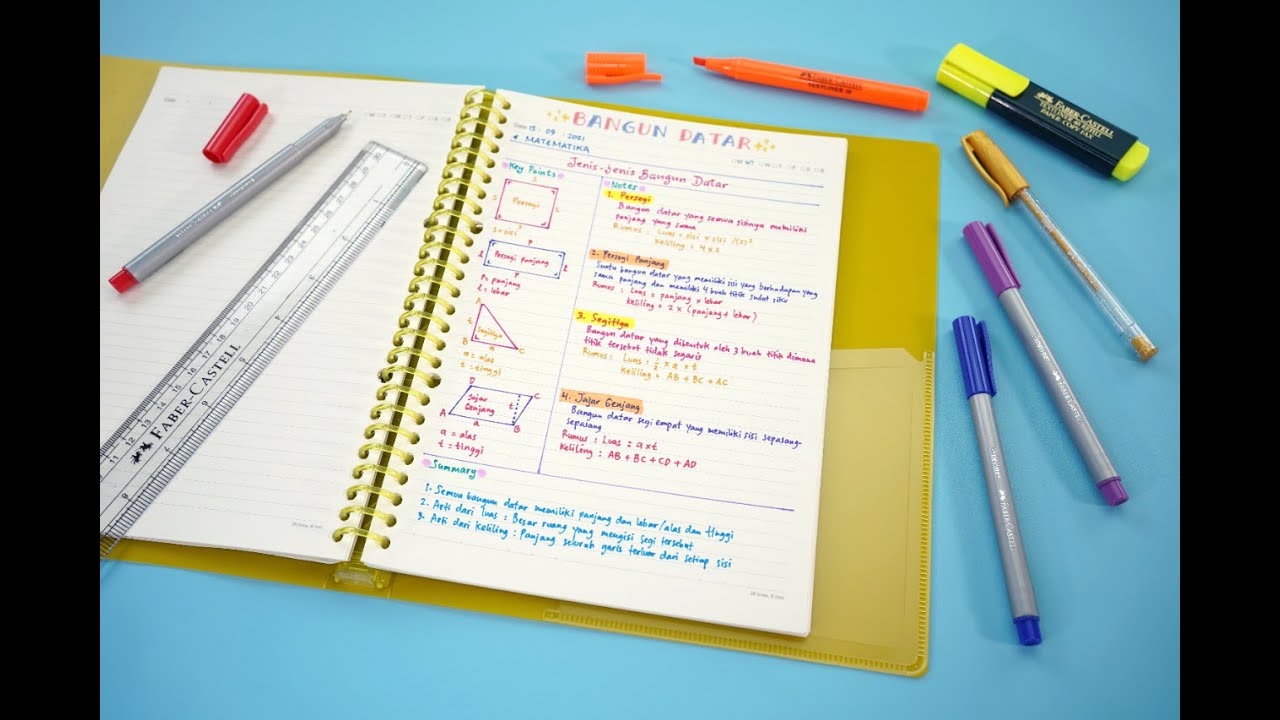 BANGUN DATAR
Date: 15 / 09 / 2021
MATEMATIKA
Jenis-Jenis Bangun Datar
Key Points
s
Persegi
s
s
P
Persegi Panjang
l
l
P
P = panjang
l = lebar
A
t
Segitiga
B
a
C
a = alas
t = tinggi
D
C
Jajar
Genjang
t
A
B
a
a = alas
t = tinggi
Notes
1. Persegi
Bangun datar yang semua sisinya memiliki
panjang yang sama
Rumus : Luas = sisi x sisi /(s)²
Keliling = 4 x s
2. Persegi Panjang
Suatu bangun datar yang memiliki sisi yang berhadapan yang
sama panjang dan memiliki 4 buah titik sudut siku
Rumus : Luas = panjang x lebar
Keliling = 2 x (panjang + lebar)
3. Segitiga
Bangun datar yang dibentuk oleh 3 buah titik dimana
titik tersebut tidak segaris
Rumus : Luas = ½ x a x t
Keliling = AB + BC + AC
4. Jajar Genjang
Bangun datar segi empat yang memiliki sisi sepasang-
sepasang
Rumus : Luas = a x t
Keliling : AB + BC + CD + AD
Summary
1. Semua bangun datar memiliki panjang dan lebar/alas dan tinggi
2. Arti dari luas : Besar ruang yang mengisi segi tersebut
3. Arti dari keliling : Panjang seluruh garis terluar dari setiap sisi
26 lines, 6 mm
26 lines, 6 mm
Date
FABER-CASTELL
FABER-CASTELL
TEXTLINER
FABER-CASTELL
TEXTLINER
PAPER COPY FAX
FABER-CASTELL
FABER-CASTELL